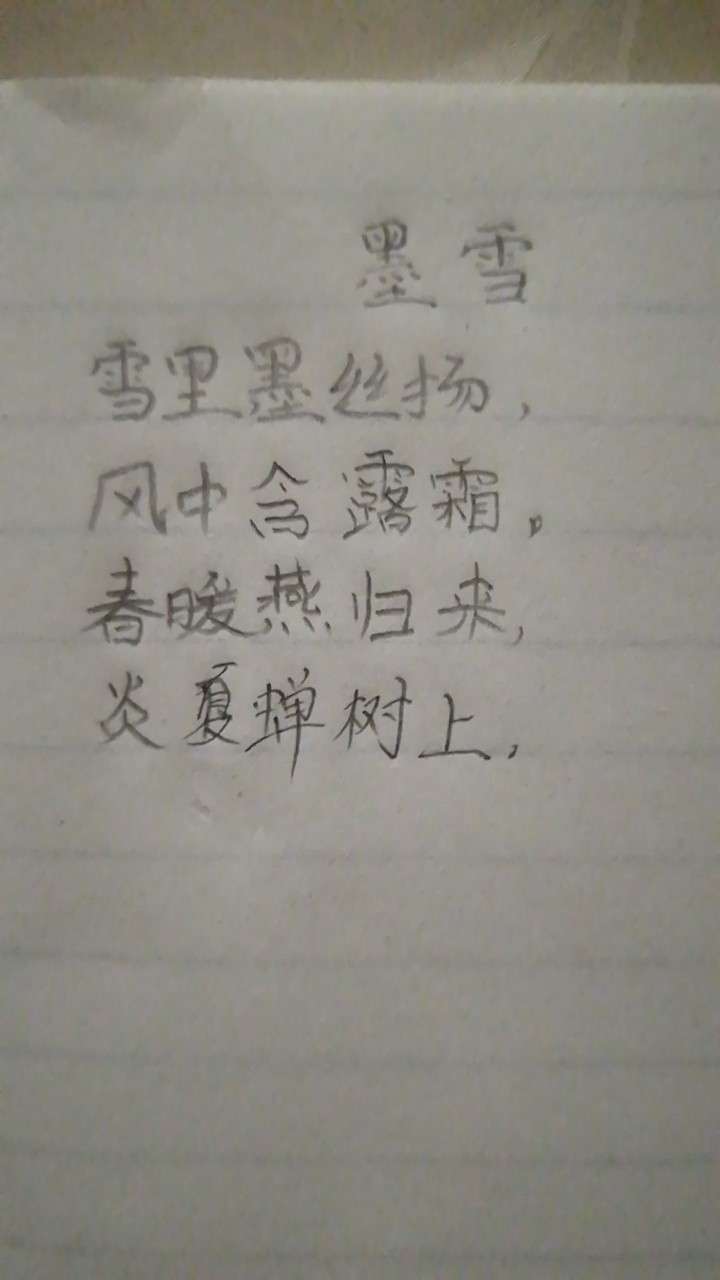 墨雪
雪里墨丝扬，
风中含露霜。
春暖燕归来，
炎夏蝉树上，